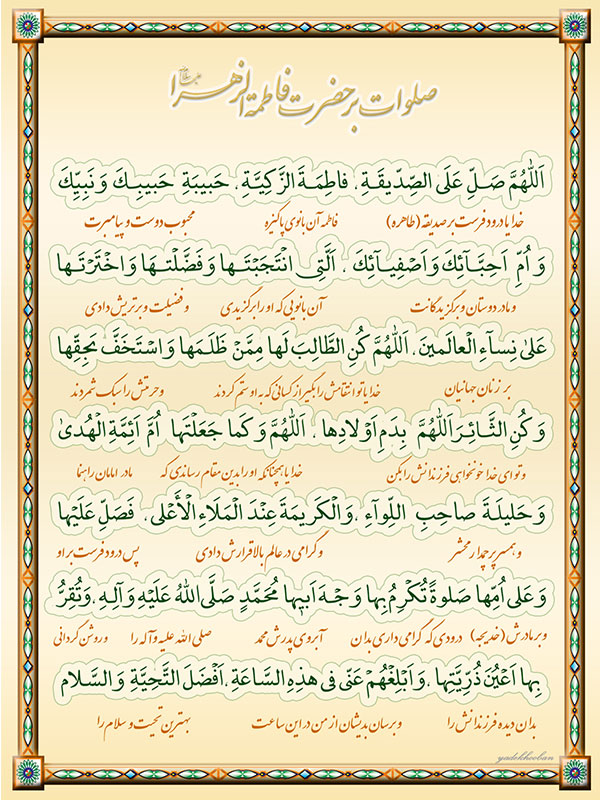 صلوات بر حضرت فاطمة الزهرا
اَللّٰهُمَّ صَلِّ عَلَى الصِّدّيقَةِ ، فاطِمَةَ الزَّكِيَّةِ ، حَبيبَةِ حَبيبِكَ وَ نَبِيِّكَ
خدایا درود فرست بر صدیقه (طاهره) فاطمه آن بانوی پاکیزه محبوب دوست و پیامبرت
وَ اُمِّ اَحِبَّآئِكَ وَ اَصْفِيآئِكَ ، اَلَّتِى انْتَجَبْتَها وَ فَضَّلْتَها وَ اخْتَرْتَها
و مادر دوستان و برگزیدگانت آن بانویی که او را برگزیدی و فضیلت و برتریش دادی
عَلىٰ نِسآءِ الْعالَمينَ. اَللّٰهُمَّ كُنِ الطّالِبَ لَها مِمَّنْ ظَلَمَها وَ اسْتَخَفَّ بِحَقِّها
بر زنان جهانیان خدایا تو انتقامش را بگیر از کسانی که به او ستم کردند و حرمتش را سبک شمردند
وَ كُنِ الثّائِرَ اَللّٰهُمَّ بِدَمِ اَوْلادِها ، اَللّٰهُمَّ وَ كَما جَعَلْتَها اُمَّ اَئِمَّةِ الْهُدىٰ
و تو ای خدا خونخواهی فرزندانش را بکن خدایا همچنانکه او را بدین مقام رساندی که مادر امامان راهنما
وَ حَليلَةَ صاحِبِ اللِّوآءِ ،وَ الْكَريمَةَ عِنْدَ الْمَلَاءِ الْأَعْلى ، فَصَلِّ عَلَيْها
و همسر پرچمدار محشر و گرامی در عالم بالا قرارش دادی پس درود فرست بر او
وَ عَلى اُمِّها صَلوةً تُكْرِمُ بِها وَجْهَ اَبيها مُحَمَّدٍ صَلَّى اللهُ عَلَيْهِ وَ آلِهِ ،وَ تُقِرُّ
و بر مادرش (خدیجه) درودی که گرامی داری بدان آبروی پدرش محمد صلی الله علیه و آله را و روشن گردانی
بِها اَعْيُنَ ذُرِّيَّتِها ،وَ اَبْلِغْهُمْ عَنّى فى هذِهِ السّاعَةِ ، اَفْضَلَ التَّحِيَّةِ وَ السَّلام
بدان دیده فرزندانش را و برسان بدیشان از من در این ساعت بهترین تحیت و سلام را
yadekhooban